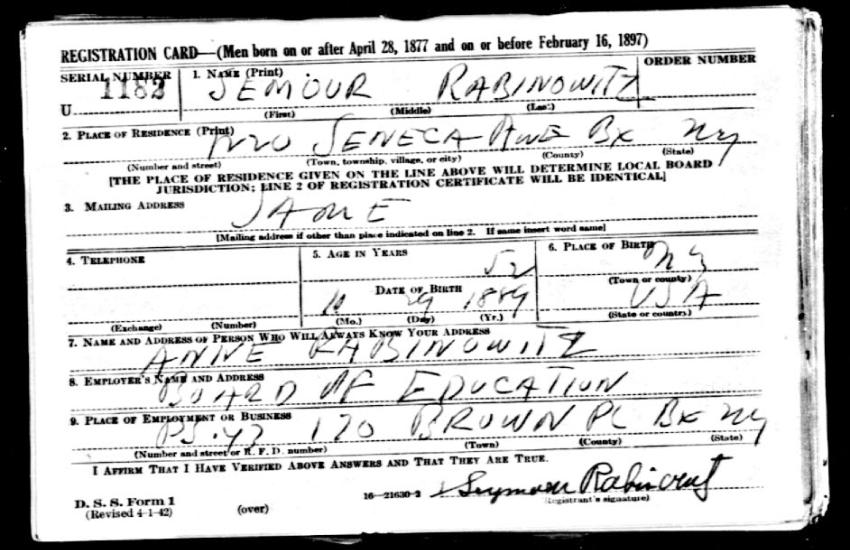 REGISTRATION CARD—(Men born on or after April 28, 1877 and on or before February 16, 1897)
SERIAL NUMBER 1. NAME (Print) ORDER NUMBER
1182 SEMOUR RABINOWITZ
U
(First) (Middle) (Last)
2. PLACE OF RESIDENCE (Print)
SENECA AVE BX NY
(Number and street) (Town, township, village, or city) (County) (State)
[THE PLACE OF RESIDENCE GIVEN ON THE LINE ABOVE WILL DETERMINE LOCAL BOARD
JURISDICTION; LINE 2 OF REGISTRATION CERTIFICATE WILL BE IDENTICAL]
3. MAILING ADDRESS
SAME
[Mailing address if other than place indicated on line 2. If same insert word same]
4. TELEPHONE 5. AGE IN YEARS 6. PLACE OF BIRTH
52 NY
(Town or county)
DATE OF BIRTH
10 29 1889 USA
(Exchange) (Number) (Mo.) (Day) (Yr.) (State or country)
7. NAME AND ADDRESS OF PERSON WHO WILL ALWAYS KNOW YOUR ADDRESS
ANNE RABINOWITZ
8. EMPLOYER'S NAME AND ADDRESS
BOARD OF EDUCATION
9. PLACE OF EMPLOYMENT OR BUSINESS
PS. 43 170 BROWN PL BX NY
(Number and street or R. F. D. number) (Town) (County) (State)
I AFFIRM THAT I HAVE VERIFIED ABOVE ANSWERS AND THAT THEY ARE TRUE.
D. S. S. Form 1
(Revised 4-1-42) (over) 16—21630-2 Seymour Rabinowitz
(Registrant's signature)